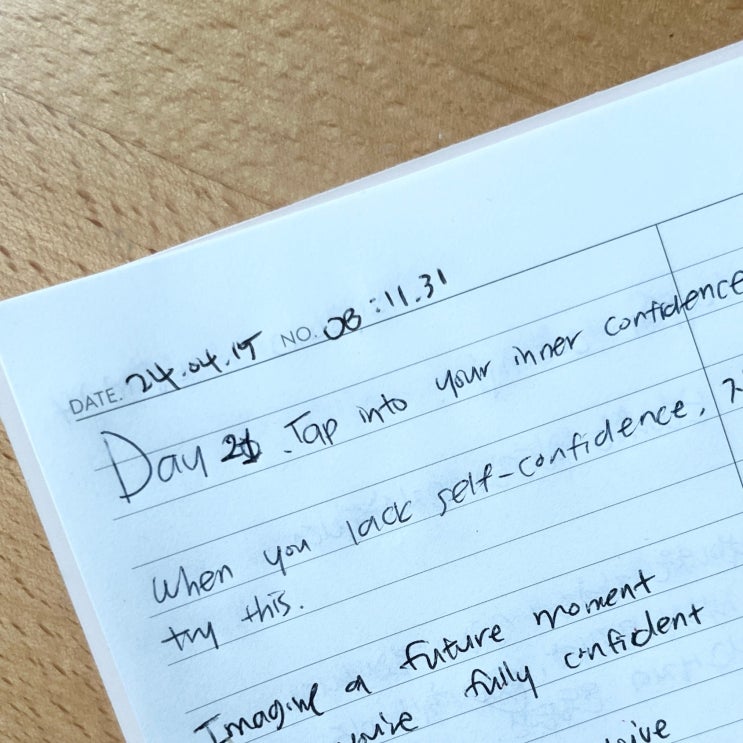 DATE. 24.04.15 NO. 08:11.31
Day 21. Tap into your inner confidence
When you lack self-confidence,
try this.
Imagine a future moment
fully confident